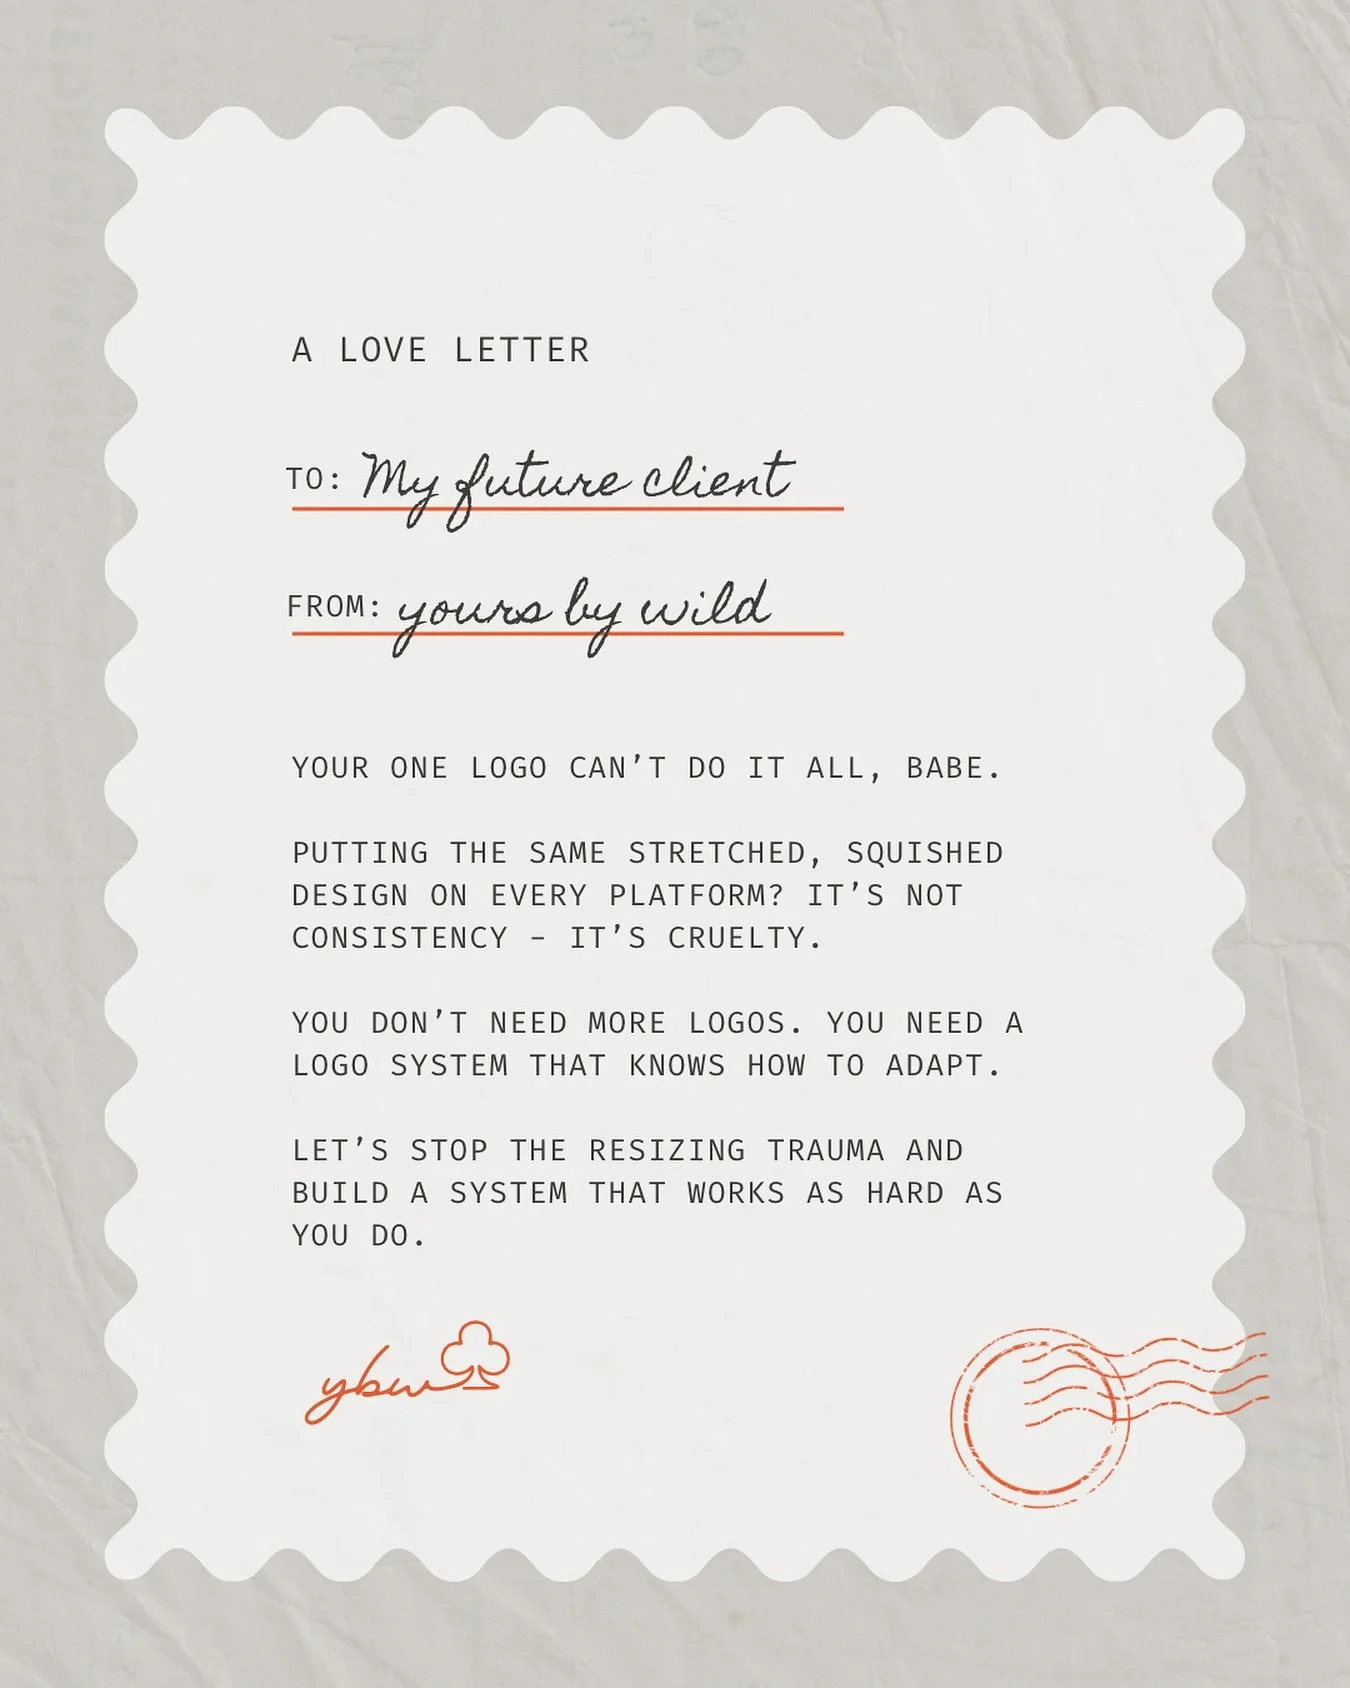 A LOVE LETTER
TO: My future client
FROM: yours by wild
YOUR ONE LOGO CAN’T DO IT ALL, BABE.
PUTTING THE SAME STRETCHED, SQUISHED
DESIGN ON EVERY PLATFORM? IT’S NOT
CONSISTENCY – IT’S CRUELTY.
YOU DON’T NEED MORE LOGOS. YOU NEED A
LOGO SYSTEM THAT KNOWS HOW TO ADAPT.
LET’S STOP THE RESIZING TRAUMA AND
BUILD A SYSTEM THAT WORKS AS HARD AS
YOU DO.
ybw